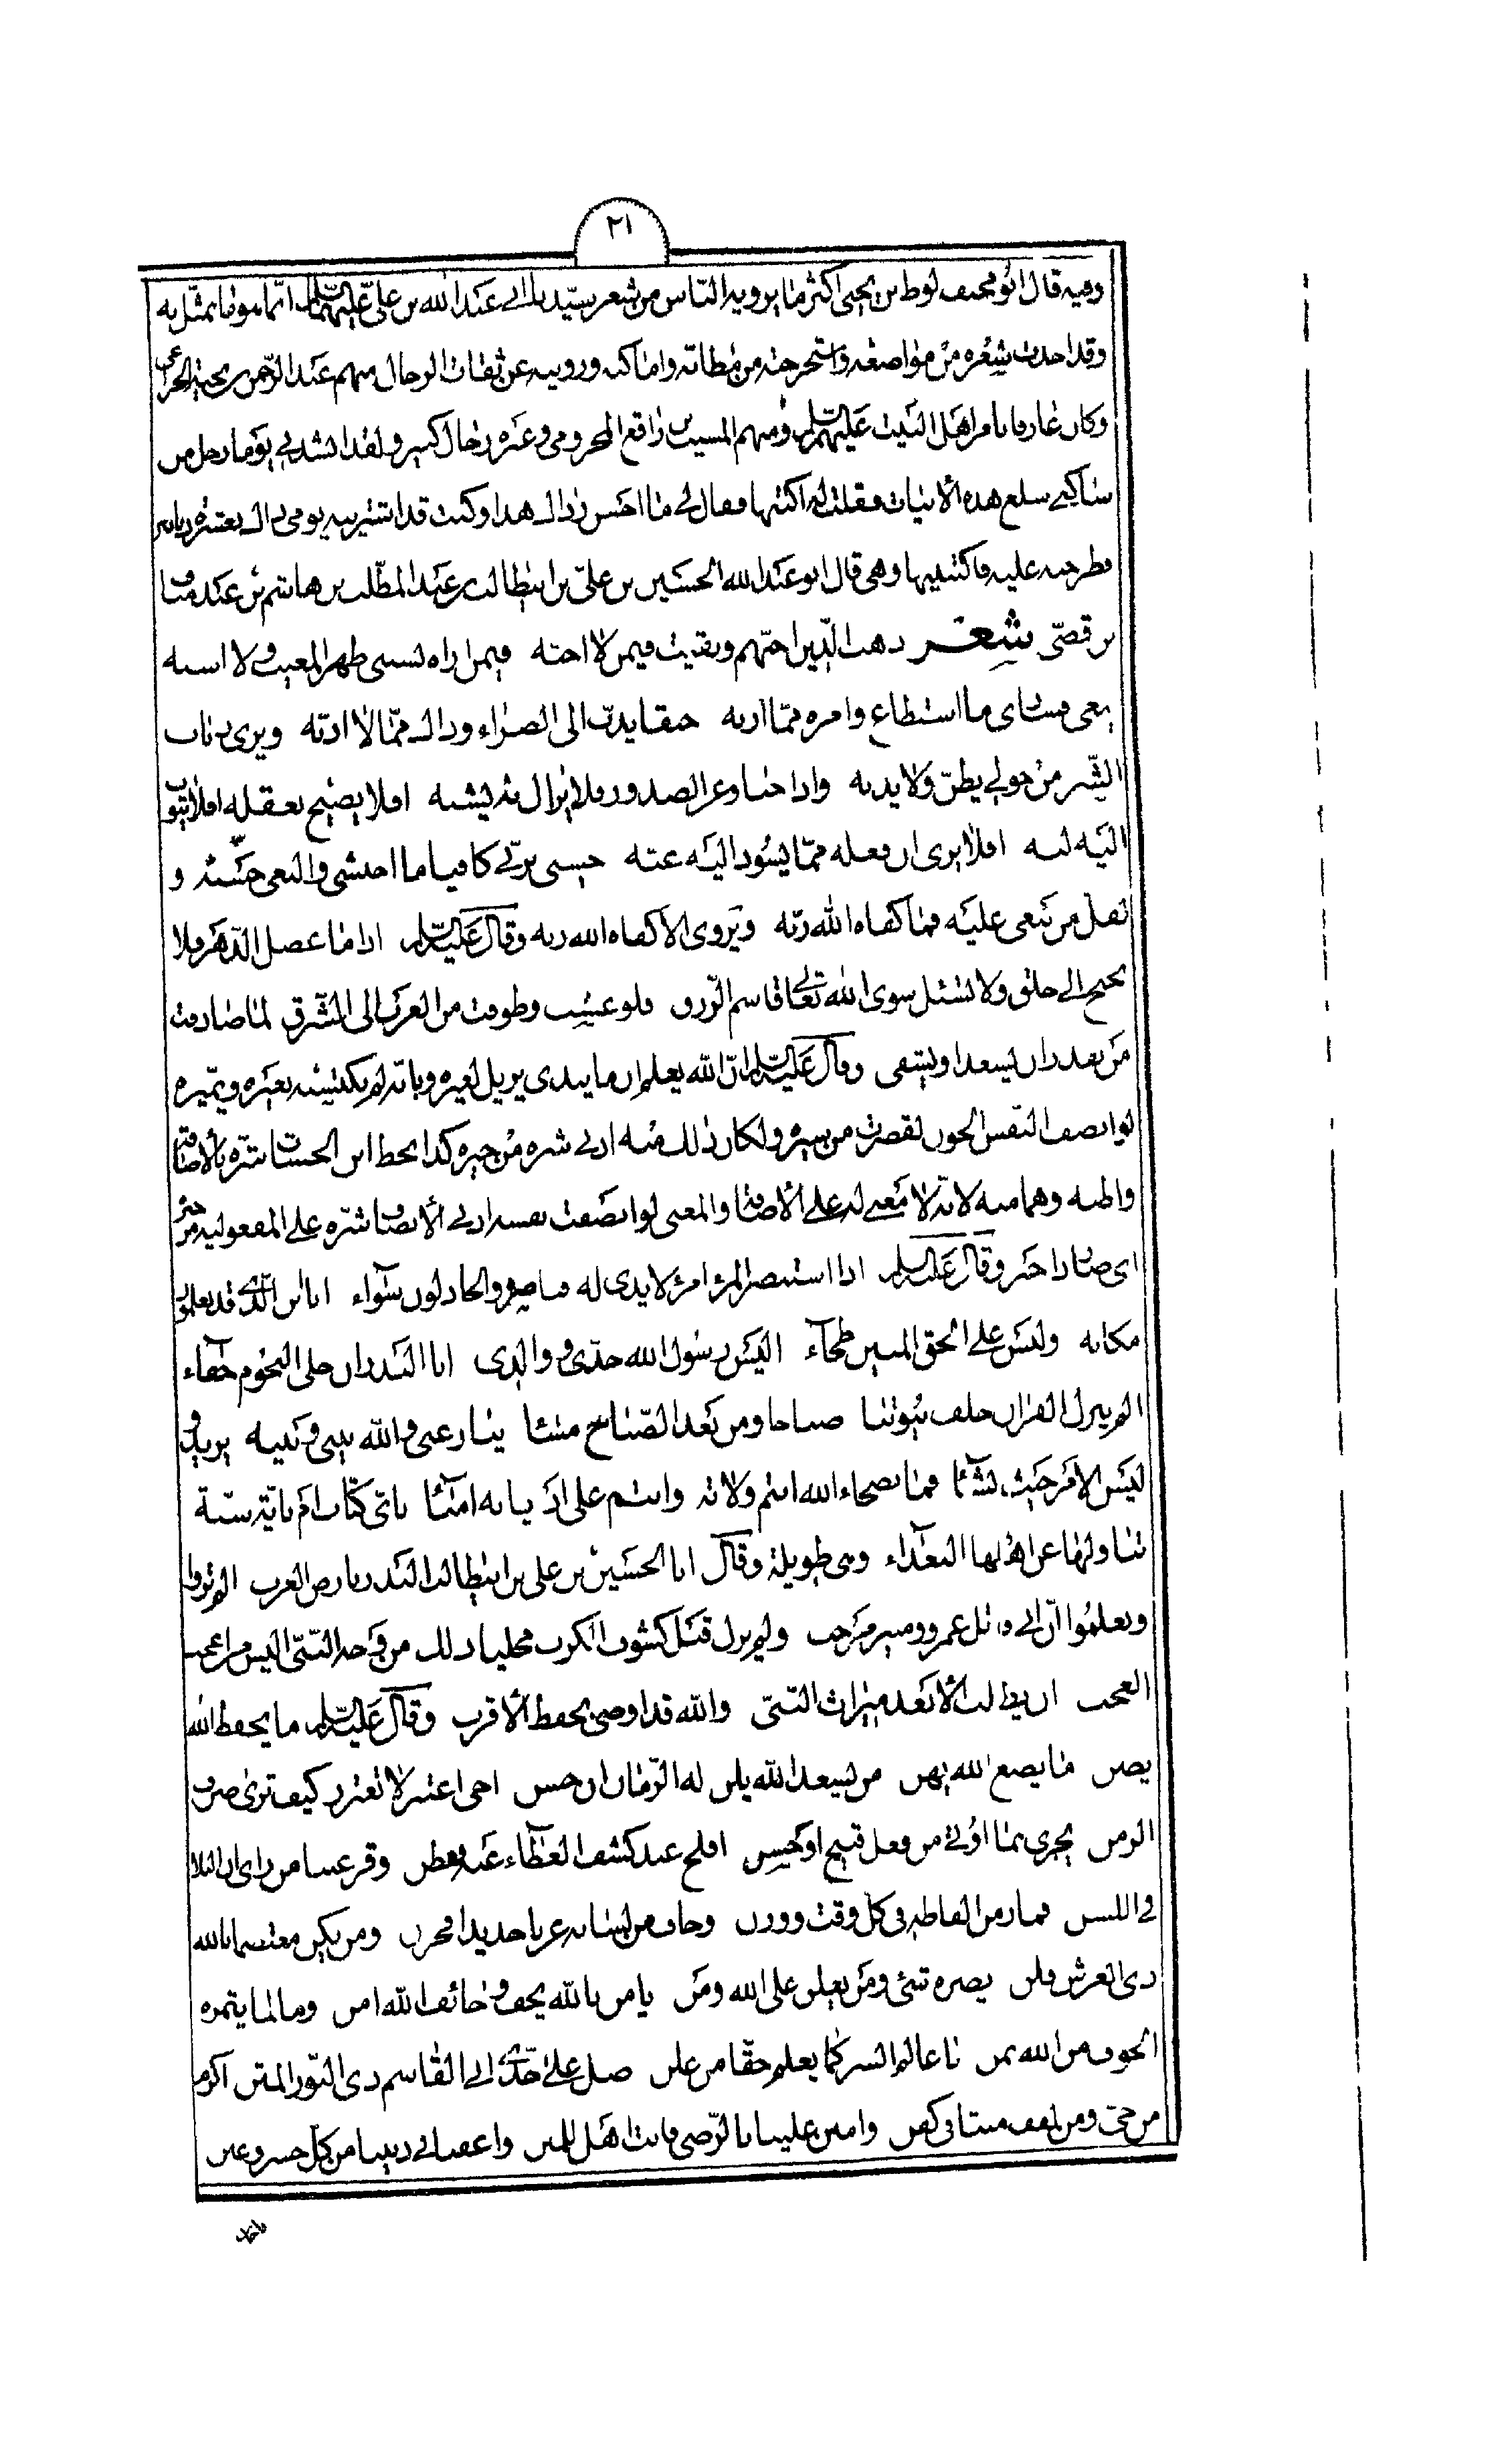 ٢١
وفيه قال أبو مخنف لوط بن يحيى أكثر ما يرويه الناس من شعر سيدنا أبي عبد الله بن علي عليهما السلام إنما هو ما تمثل به
وقد أخذت شعره من مواضعه واستخرجته من مظانه وأماكنه ورويته عن ثقات الرجال منهم عبد الرحمن بن نجبة الخزاعي
وكان عارفا بأمر أهل البيت عليهم السلام ومنهم المسيب بن رافع المخزومي وغيره رجال كثير ولقد أنشدني يوما رجل من
ساكني سلع هذه الأبيات فقلت له اكتبنيها فقال لي ما أحسن رداءك هذا وكنت قد اشتريته يومي ذاك بعشرة دنانير
فطرحته عليه فاكتتبنيها وهي قال أبو عبد الله الحسين بن علي بن أبيطالب بن عبد المطلب بن هاشم بن عبد مناف
بن قصي شعر ذهب الذين احبهم وبقيت فيمن لا احبه فيمن اراه يسبني ظهر المغيب ولا اسبه
يبغي فسادي ما استطاع وامره مما اربه حنقا يدب الى الضراء وذاك مما لا ادبه ويرى ذباب
الشر من حولي يطن ولا يذبه واذا خبا وغر الصدور فلا يزال به يشبه افلا يعيج بعقله افلا يتوب
اليه لبه افلا يرى ان فعله مما يسور اليه غبه حسبي بربي كافيا ما اختشي والبغي حسبه و
لقل من يبغي عليه فما كفاه الله ربه ويروى الا كفاه الله ربه وقال عليه السلام اذا ما عضك الدهر فلا
تجنح الى خلق ولا تسئل سوى الله تعالى قاسم الرزق فلو عشت وطوفت من الغرب الى الشرق لما صادفت
من يقدر ان يسعد او يشقي وقال عليه السلام ان الله يعلم ان ما يبدي يزيد لغيره وبانه لم يكتسبه بغيره وبميره
لو انصف النفس الخؤن لقصرت من سيره ولكان ذلك منه ادنى شره من خيره كذا بخط ابن الخشاب شره بالاضافة
واظنه وهما منه لانه لا معنى له على الاضافة والمعنى لو انصفت نفسه ادنى الانصاف شره على المفعولية من خير
اي صار ذا خير وقال عليه السلام اذا استنصر المرء امرء لا يدي له فناصره والخاذلون سواء انا ابن الذي قد تعلمون
مكانه وليس على الحق المبين طخاء اليس رسول الله جدي و والدي انا البدر ان خلى النجوم خفاء
الم ينزل القران خلف بيوتنا صباحا ومن بعد الصباح مساء ينازعني والله بيني وبينه يزيد و
ليس الامر حيث يشاء فيا نصحاء الله انتم ولاته وانتم على اديانه امناء باي كتاب ام باية سنة
تناولها عن اهلها البعداء وهي طويلة وقال انا الحسين بن علي بن ابيطالب البدر بارض العرب الم تروا
وتعلموا ان ابي قاتل عمرو ومبير مرحب ولم يزل قبل كشوف الكرب مجليا ذلك من وجه النبي اليس من اعجب
العجب ان يطلب الابعد ميراث النبي والله قد اوصى بحفظ الاقرب وقال عليه السلام ما يحفظ الله
يصن ما يصنع الله يهن من يسعد الله يلن له الزمان ان خشن اخي اعتبر لا تغترر كيف ترى صرف
الزمن يجزي بما اوتي من فعل قبيح او حسن افلح عبد كشف الغطاء عنه ففطن وقر عينا من راى ان البلاء
في اللسن فماز من الفاظه في كل وقت ووزن وخاف من لسانه غربا حديدا فحزن ومن يكن معتصما بالله
ذي العرش فلن يضره شيء ومن يعدي على الله ومن يامن بالله يخف وخائف الله امن وما لما يثمره
الخوف من الله ثمن يا عالم السر كما يعلم حقا من علن صل على جدي ابي القاسم ذي النور المنن اكرم
من حي ومن لفف ميتا في كفن وامنن علينا بالرضى فانت اهل للمنن واعفنا في ديننا من كل خسر وغبن